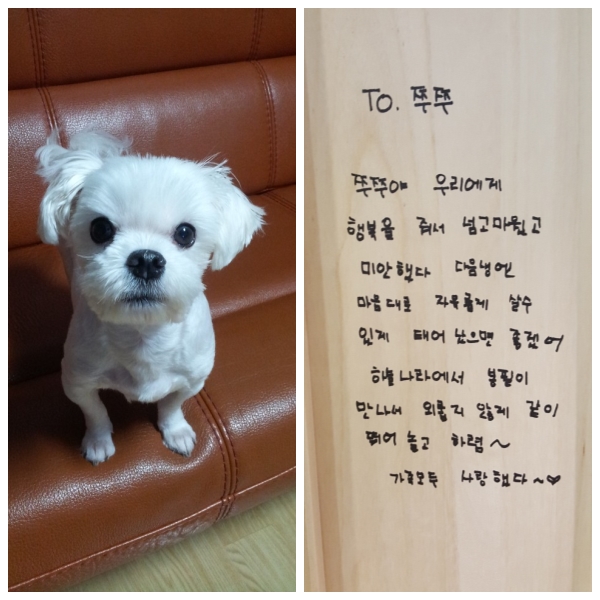 TO. 쭈쭈
쭈쭈야 우리에게
행복을 줘서 넘고마웠고
미안했다 다음생엔
마음대로 자유롭게 살수
있게 태어 났으면 좋겠어
하늘나라에서 뿡뿡이
만나서 외롭지 않게 같이
뛰어 놀고 하렴~
가족모두 사랑했다~♥